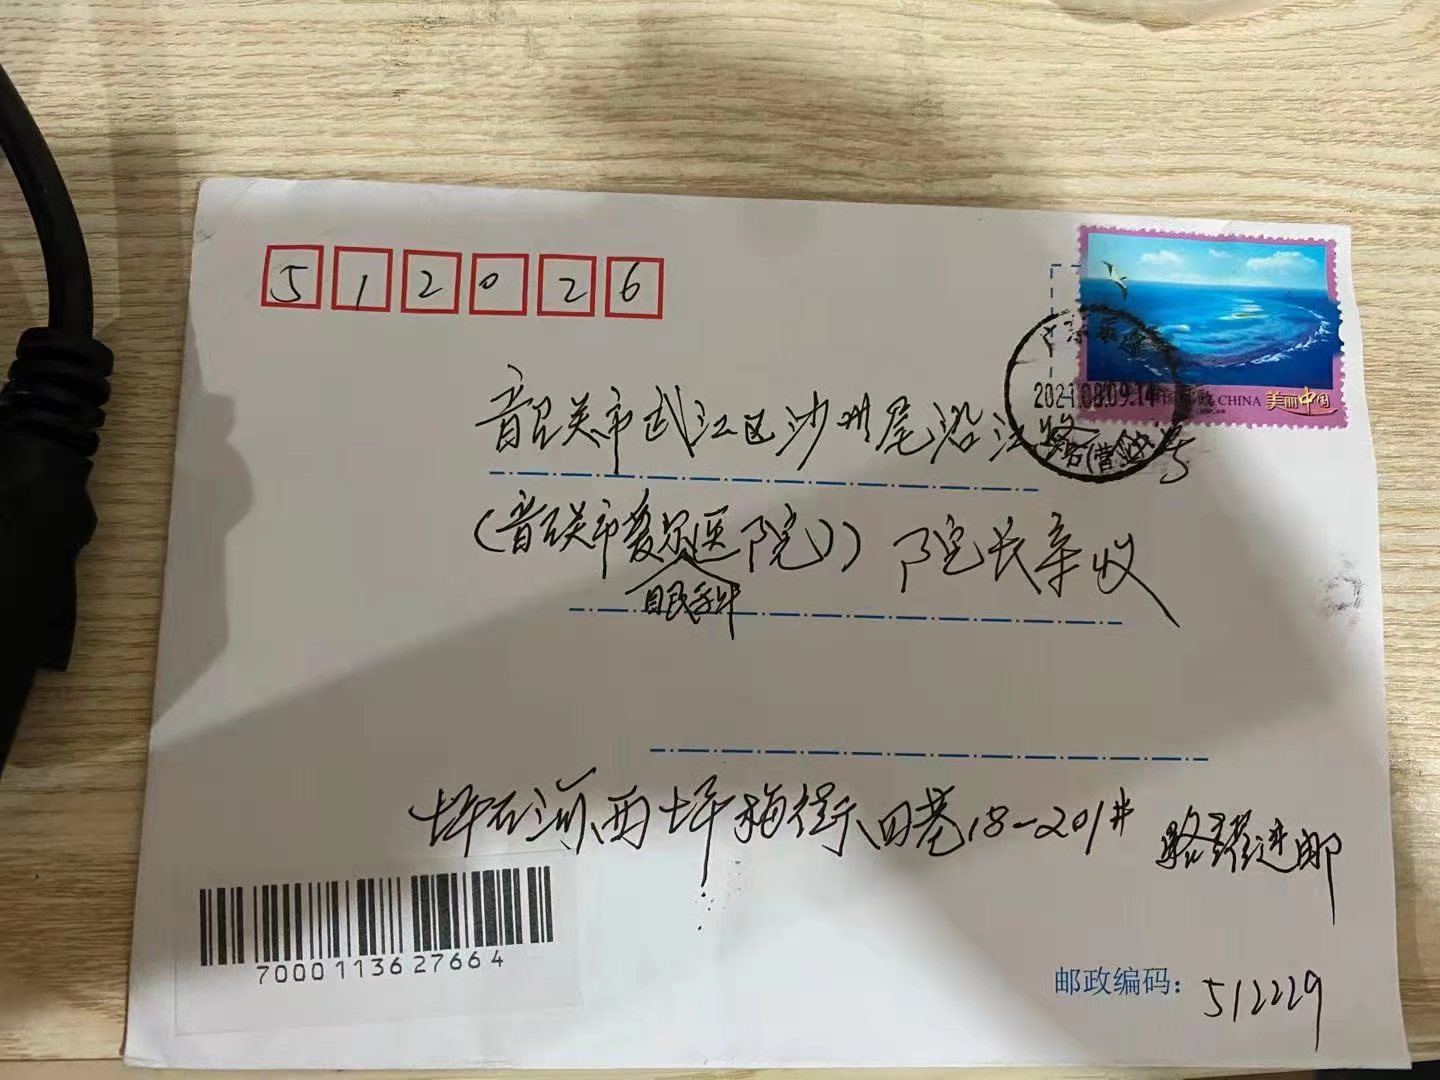 512026
中国邮政 CHINA 美丽中国
2021.08.09.14
韶关市武江区沙洲尾沿江路 号
(韶关市爱尔眼科医院) 院长亲收
坪石河西坪梅街四巷18-201#
骆 进邮
70001136 27664
邮政编码: 512229